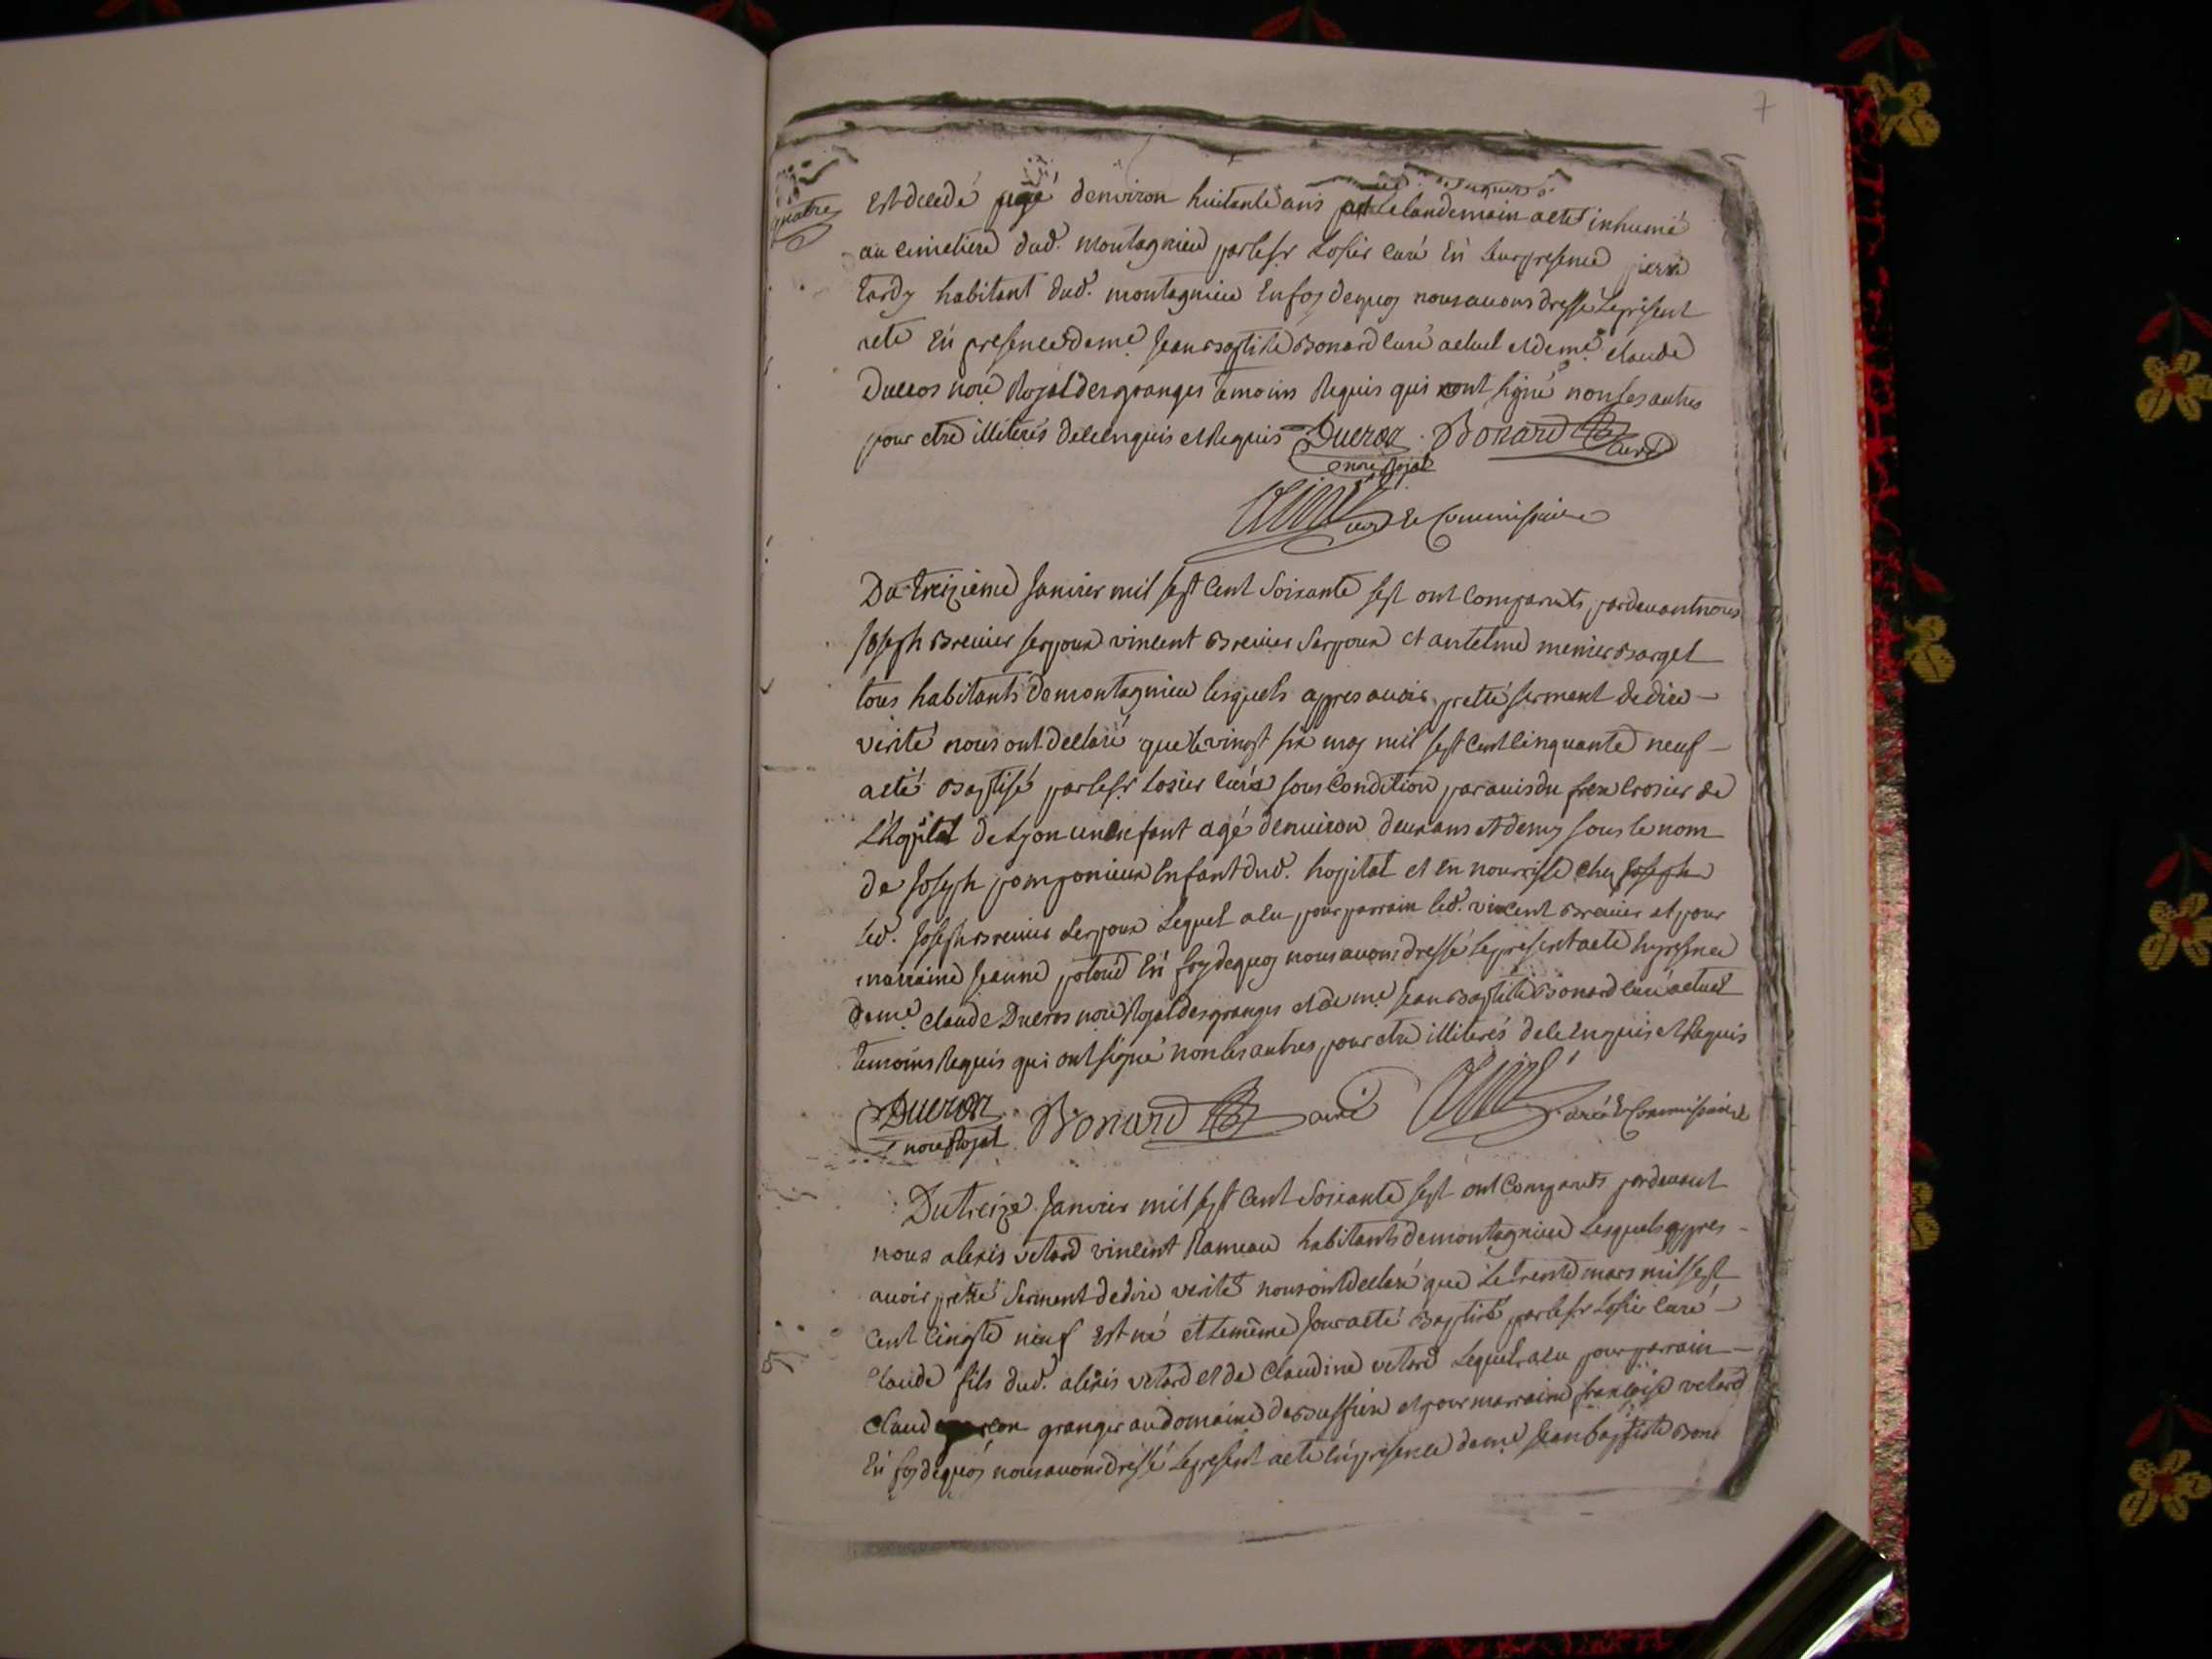 7
quatre
Est decedé agé d'environ huitante ans et le landemain a eté inhumé
au cimetiere dud. montagnieu par le sr Losier curé En leur presence pierre
tardy habitant dud. montagnieu En foy de quoy nous avons dressé le present
acte En presence de me Jean baptiste Bonard curé actuel et de me claude
Ducros nore Royal des granges temoins Requis qui ont signé non les autres
pour etre illiterés de ce enquis et Requis Ducros Bonard curé
nore Royal
curé et Commissaire
Du treizieme Janvier mil sept Cent Soixante sept ont Comparuts pardevant nous
Joseph Brevier serpoux vincent Brevier Serpoux et antelme menier Barget
tous habitants de montagnieu lesquels appres avoir pretté serment de dire
verité nous ont declaré que le vingt six may mil sept Cent Cinquante neuf
a eté Baptisé par le sr Losier curé sous Condition par avis du sieur Crosier de
L'hopital de Lyon un Enfant agé d'environ deux ans et demy sous le nom
de Joseph pomponieux Enfant dud. hopital et En nourrisse chez Joseph
led. Joseph Brevier serpoux Lequel a eu pour parrain led. vincent Brevier et pour
marraine Jeanne En foy de quoy nous avons dressé le present acte En presence
de me claude Ducros nore Royal des granges et de me Jean Baptiste Bonard curé actuel
temoins Requis qui ont signé non les autres pour etre illiterés de ce Enquis et Requis
Ducros Bonard curé curé et Commissaire
nore Royal
Du treize Janvier mil sept Cent Soixante sept ont Comparuts pardevant
nous alexis vetard vincent Rameau habitants de montagnieu Lesquels appres
avoir pretté Serment de dire verité nous ont declaré que Le trente mars mil sept
Cent Cinqte neuf Est né et le même Jour a eté Baptisé par le sr Losier curé
5
Claude fils dud. alexis vetard et de Claudine vetard Lequel a eu pour parrain
Claud granger au domaine de et pour marraine françoise vetard
En foy de quoy nous avons dressé Le present acte En presence de me Jean baptiste Bona